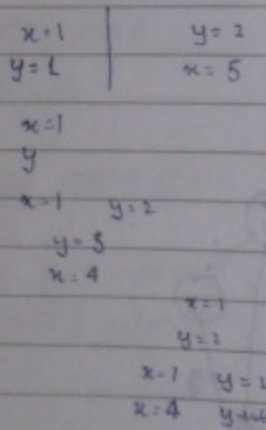 x=1 y=2
y=1 x=5
x=1
y
x=1 y=2
y=3
x=4
x=1
y=2
x=1 y=2
x=4